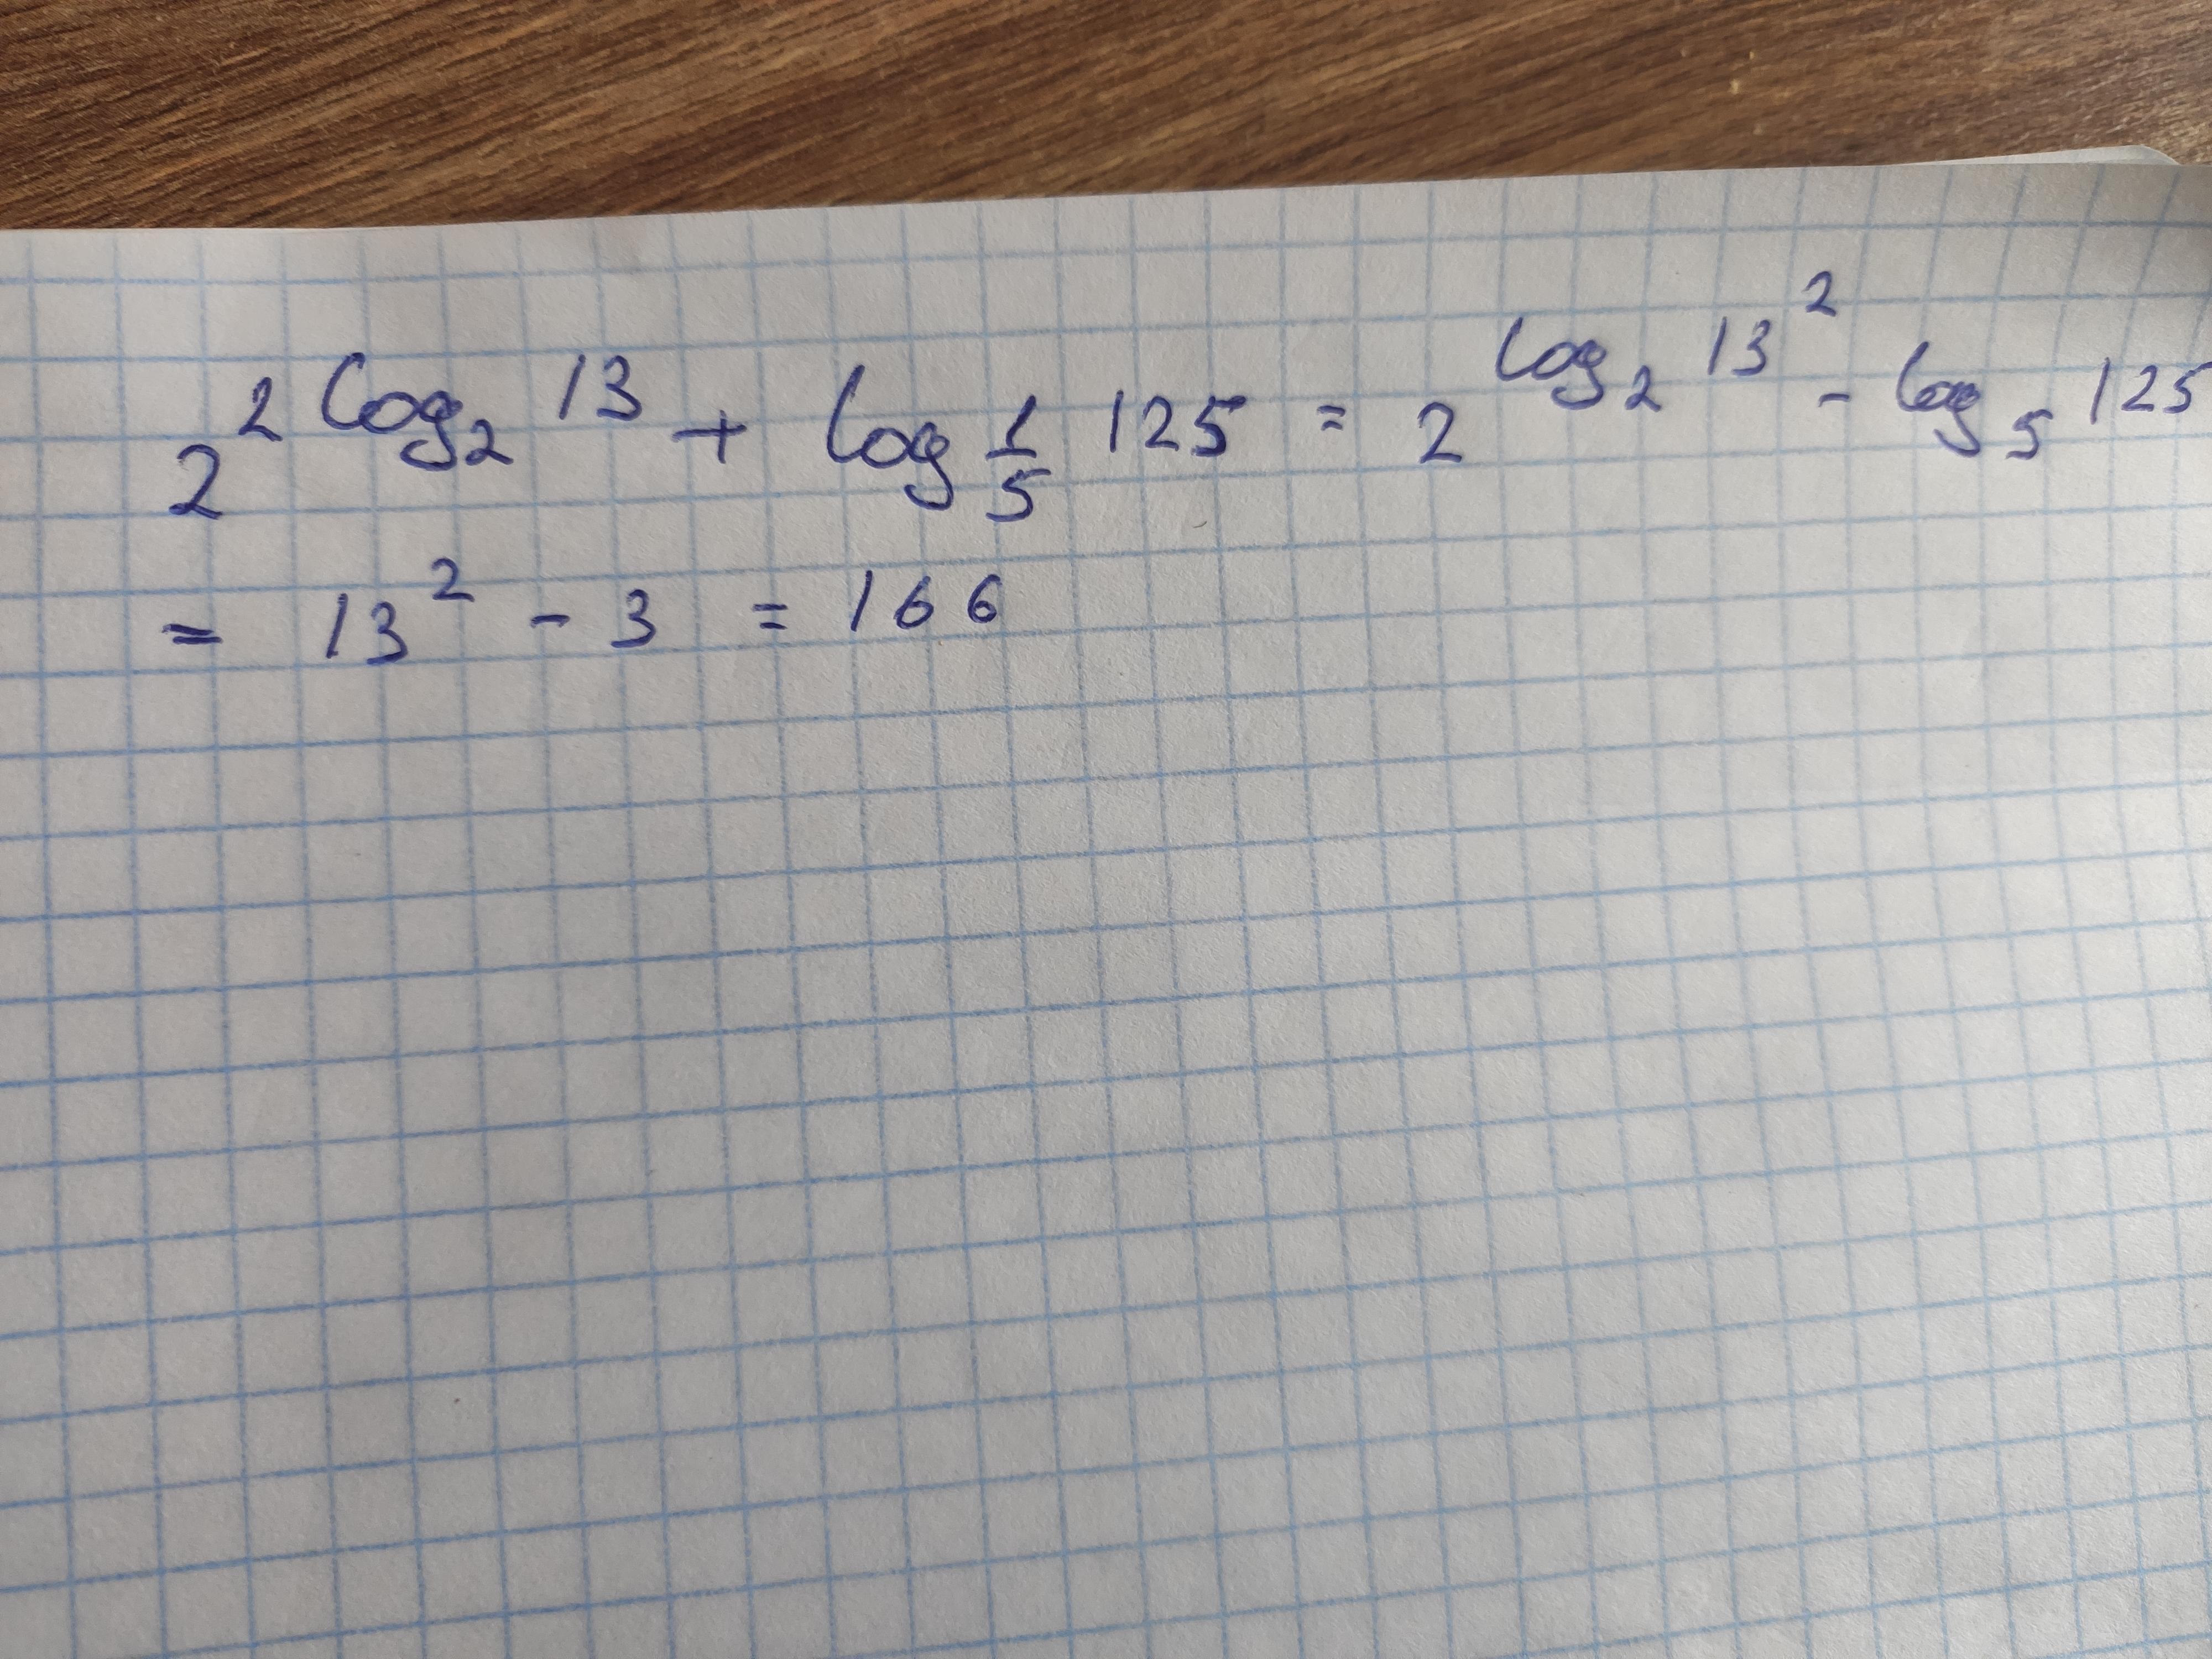 2^{2 log_2 13} + log_{1/5} 125 = 2^{log_2 13^2} - log_5 125
= 13^2 - 3 = 166